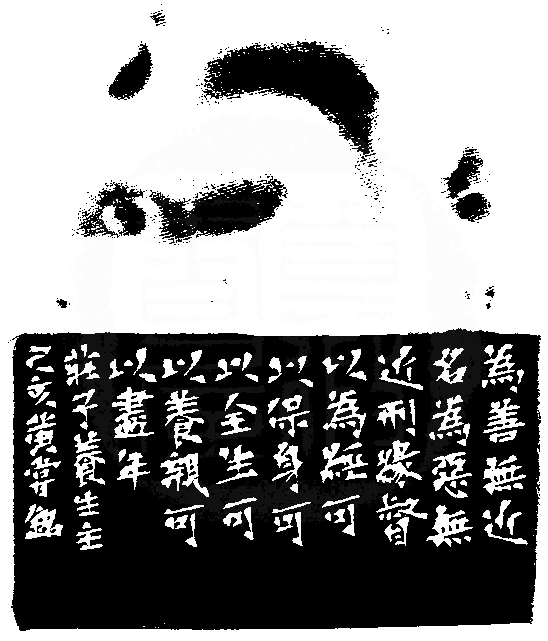 為善無近
名為惡無
近刑緣督
以為經可
以保身可
以全生可
以養親可
以盡年
莊子養生主
亥黃